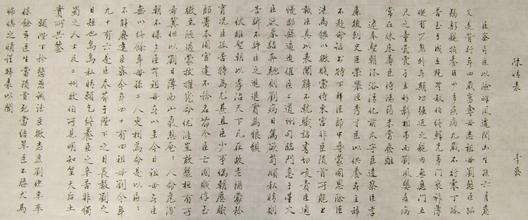 陳情表 李密
臣密言臣以險釁夙遭閔凶生孩六月慈
父見背行年四歲舅奪母志祖母劉愍臣孤
弱躬親撫養臣少多疾病九歲不行零丁孤
苦至于成立既無叔伯終鮮兄弟門衰祚薄
晚有兒息外無期功強近之親內無應門五
尺之僮煢煢孑立形影相弔而劉夙嬰疾病
常在床蓐臣侍湯藥未嘗廢離
逮奉聖朝沐浴清化前太守臣逵察臣孝
廉後刺史臣榮舉臣秀才臣以供養無主辭
不赴命詔書特下拜臣郎中尋蒙國恩除臣
洗馬猥以微賤當侍東宮非臣隕首所能上
報臣具以表聞辭不就職詔書切峻責臣逋
慢郡縣逼迫催臣上道州司臨門急於星火
臣欲奉詔奔馳則劉病日篤欲苟順私情則
告訴不許臣之進退實為狼狽
伏惟聖朝以孝治天下凡在故老猶蒙矜
育況臣孤苦特為尤甚且臣少仕偽朝歷職
郎署本圖宦達不矜名節今臣亡國賤俘至
微至陋過蒙拔擢寵命優渥豈敢盤桓有所
希冀但以劉日薄西山氣息奄奄人命危淺
朝不慮夕臣無祖母無以至今日祖母無臣
無以終餘年母孫二人更相為命是以區區
不能廢遠臣密今年四十有四祖母劉今年
九十有六是臣盡節於陛下之日長報劉之
日短也烏鳥私情願乞終養臣之辛苦非獨
蜀之人士及二州牧伯所見明知皇天后土
實所共鑒
願陛下矜愍愚誠聽臣微志庶劉僥倖
保餘年臣生當隕首死當結草臣不勝犬馬
怖懼之情謹拜表以聞